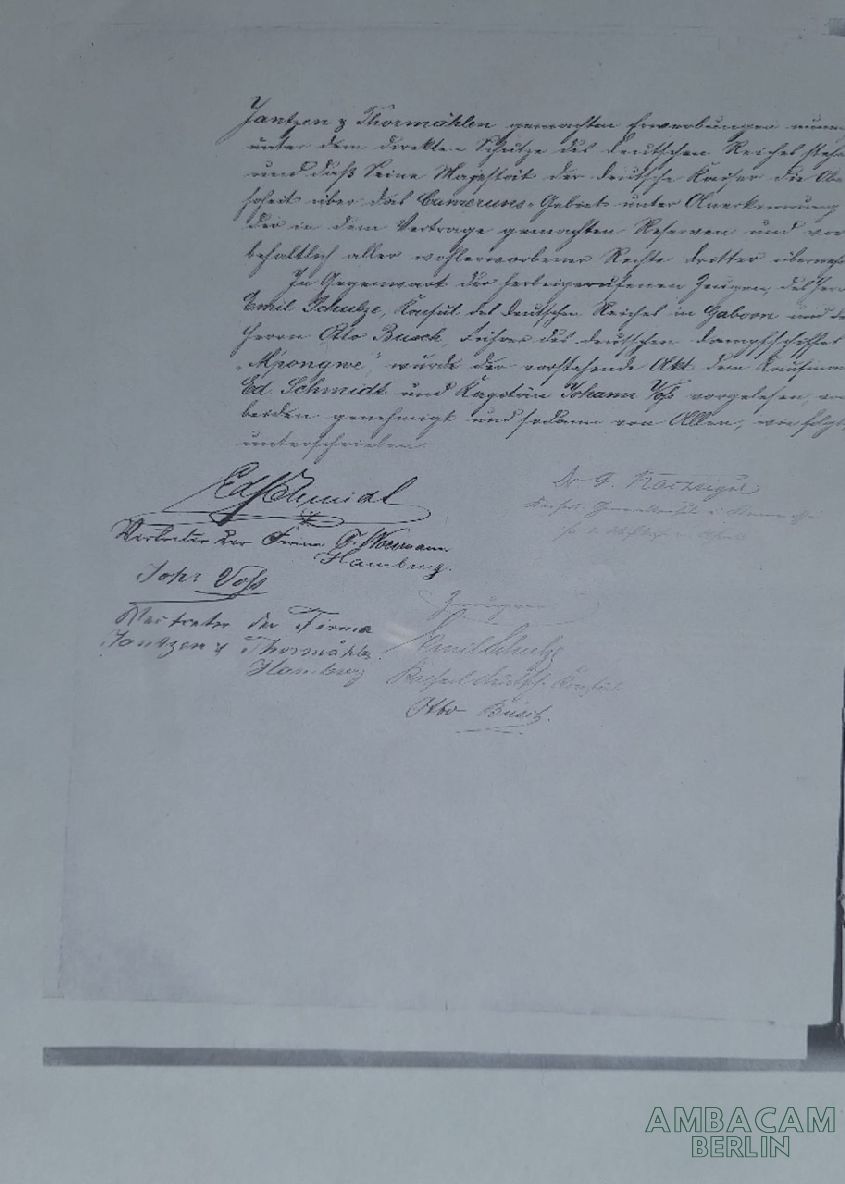 Jantzen & Thormählen gemachten Erwerbungen nun
unter dem direkten Schutze des deutschen Reiches steh
und daß Seine Majestät der deutsche Kaiser die Obe
hoheit über das Cameruns-Gebiet unter Anerkennung
der in dem Vertrage gemachten Reserven und vor
behaltlich aller wohlerworbener Rechte dritter überneh
In Gegenwart der herbeigerufenen Zeugen, des Herrn
Emil Schulze, Konsul des deutschen Reiches in Gaboon und de
Herrn Otto Busch, Führer des deutschen Dampfschiffes
"Mpongwe", wurde der vorstehende Akt dem Kaufman
Ed. Schmidt und Kapitän Johann Voß vorgelesen, von
beiden genehmigt und sodann von Allen, wie folgt
unterschrieben.
Ed Schmidt
Dr G. Nachtigal
Vertreter der Firma C. Woermann
Hamburg.
Joh: Voß
Zeugen
Vertreter der Firma
Jantzen & Thormählen
Hamburg
Emil Schulze
Otto Busch.
AMBACAM
BERLIN